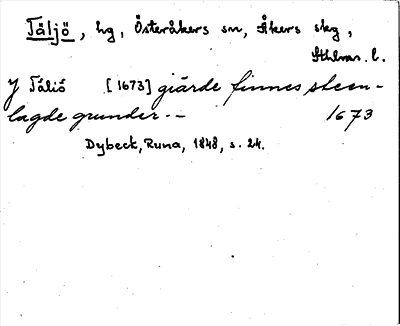 Täljö, hg, Österåkers sn, Åkers skg,
Sthlms. l.
J Tåliö [1673] giärde finnes steen-
lagde grunder -- 1673
Dybeck, Runa, 1848, s. 24.